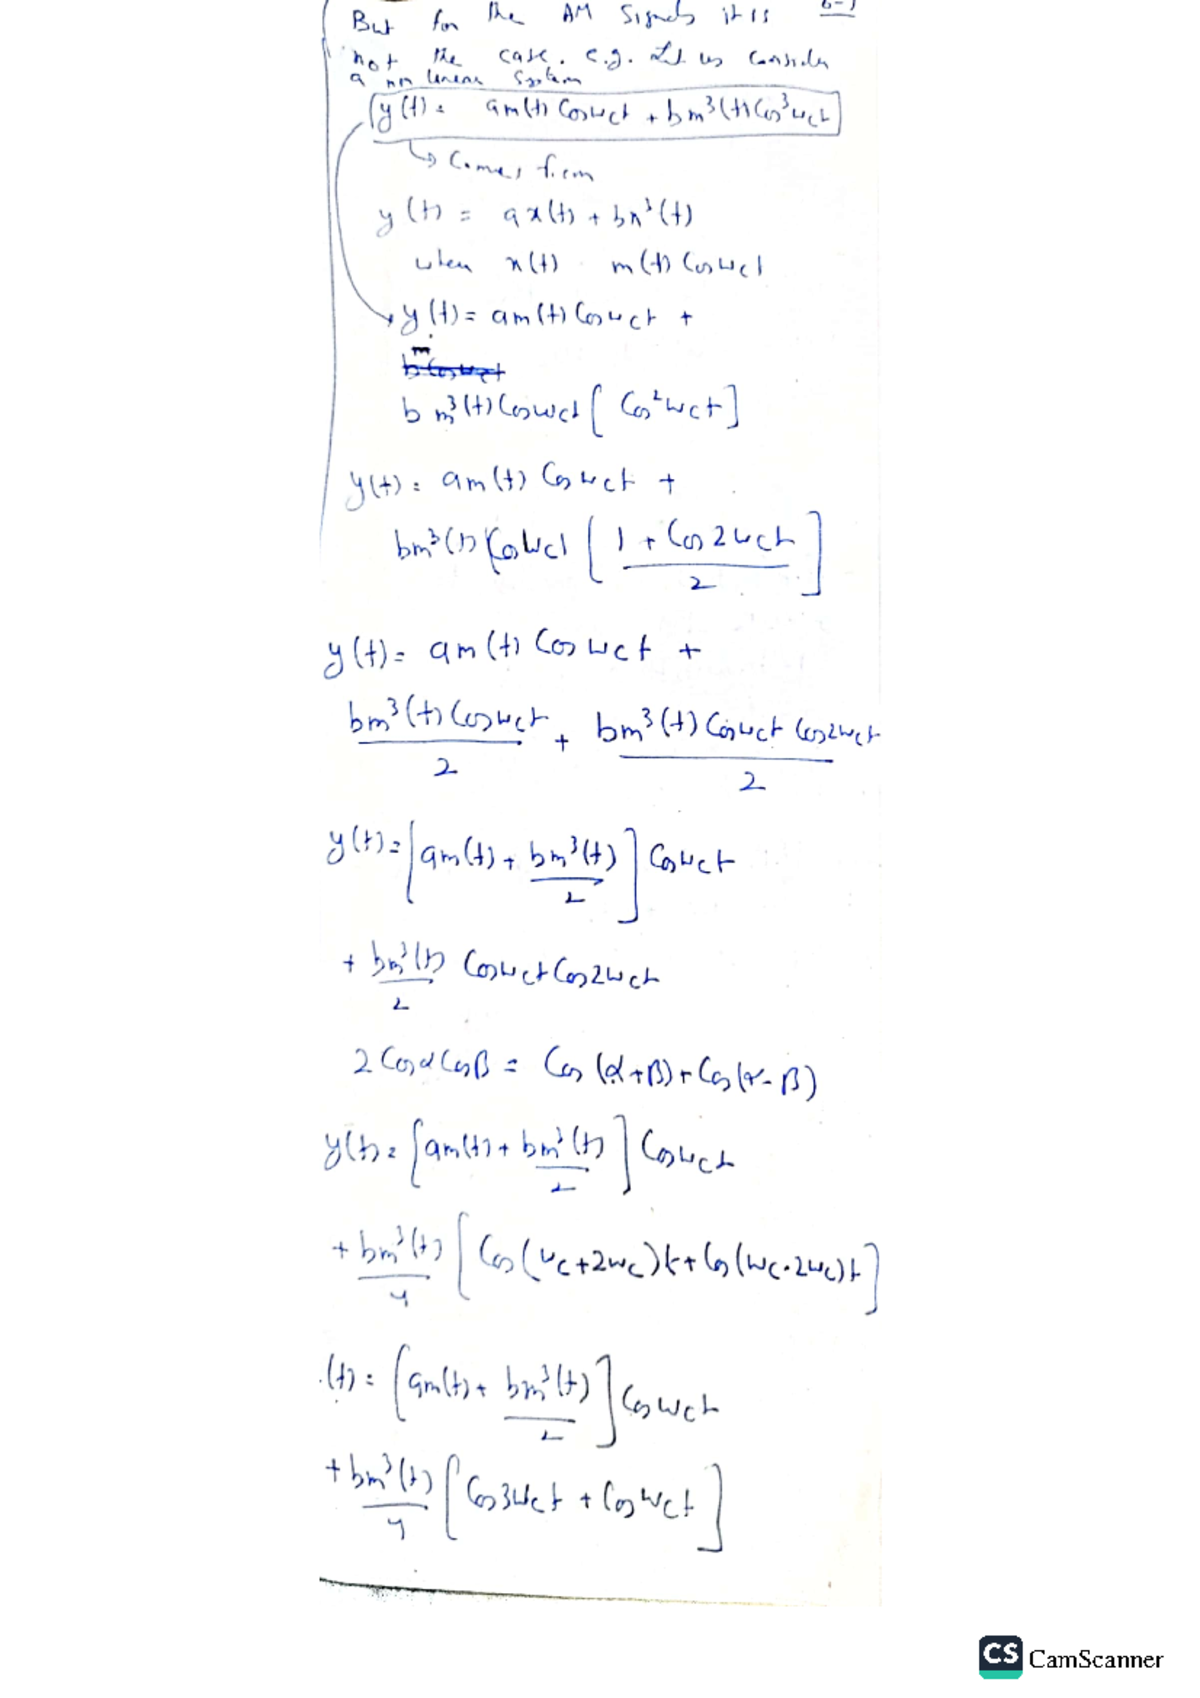 But for the AM Signals it is
not the case. e.g. Let us Consider
a non linear System
y(t) = am(t) Cosωct + bm³(t) Cos³ωct
↳ Comes from
y(t) = ax(t) + bx³(t)
when x(t) = m(t) Cosωct
y(t) = am(t) Cosωct +
b m³(t) Cosωct [ Cos²ωct ]
y(t) = am(t) Cosωct +
bm³(t) Cosωct [ (1 + Cos2ωct)/2 ]
y(t) = am(t) Cosωct +
bm³(t) Cosωct/2 + bm³(t) Cosωct Cos2ωct/2
y(t) = [ am(t) + bm³(t)/2 ] Cosωct
+ bm³(t)/2 Cosωct Cos2ωct
2 Cosα Cosβ = Cos(α+β) + Cos(α-β)
y(t) = [ am(t) + bm³(t)/2 ] Cosωct
+ bm³(t)/4 [ Cos(ωc+2ωc)t + Cos(ωc-2ωc)t ]
(t) = [ am(t) + bm³(t)/2 ] Cosωct
+ bm³(t)/4 [ Cos3ωct + Cosωct ]
CS CamScanner